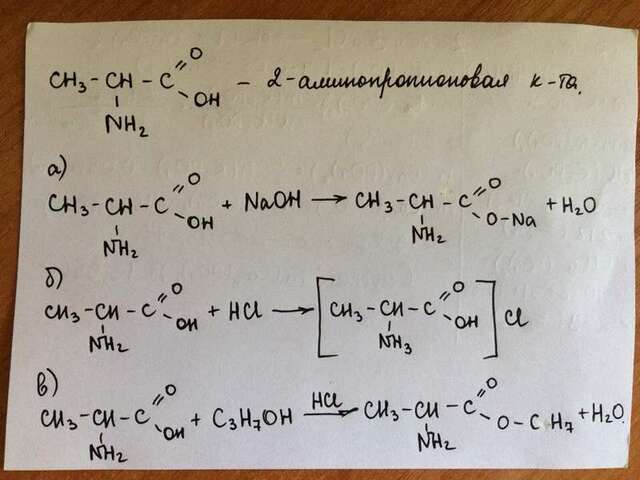 CH₃ - CH - C =O - OH - 2-аминопропионовая к-та.
NH₂
а)
CH₃ - CH - C =O - OH + NaOH → CH₃ - CH - C =O - O-Na + H₂O
NH₂ NH₂
б)
CH₃ - CH - C =O - OH + HCl → [CH₃ - CH - C =O - OH] Cl
NH₂ NH₃
в)
CH₃ - CH - C =O - OH + C₃H₇OH HCl → CH₃ - CH - C =O - O - C H₇ + H₂O.
NH₂ NH₂